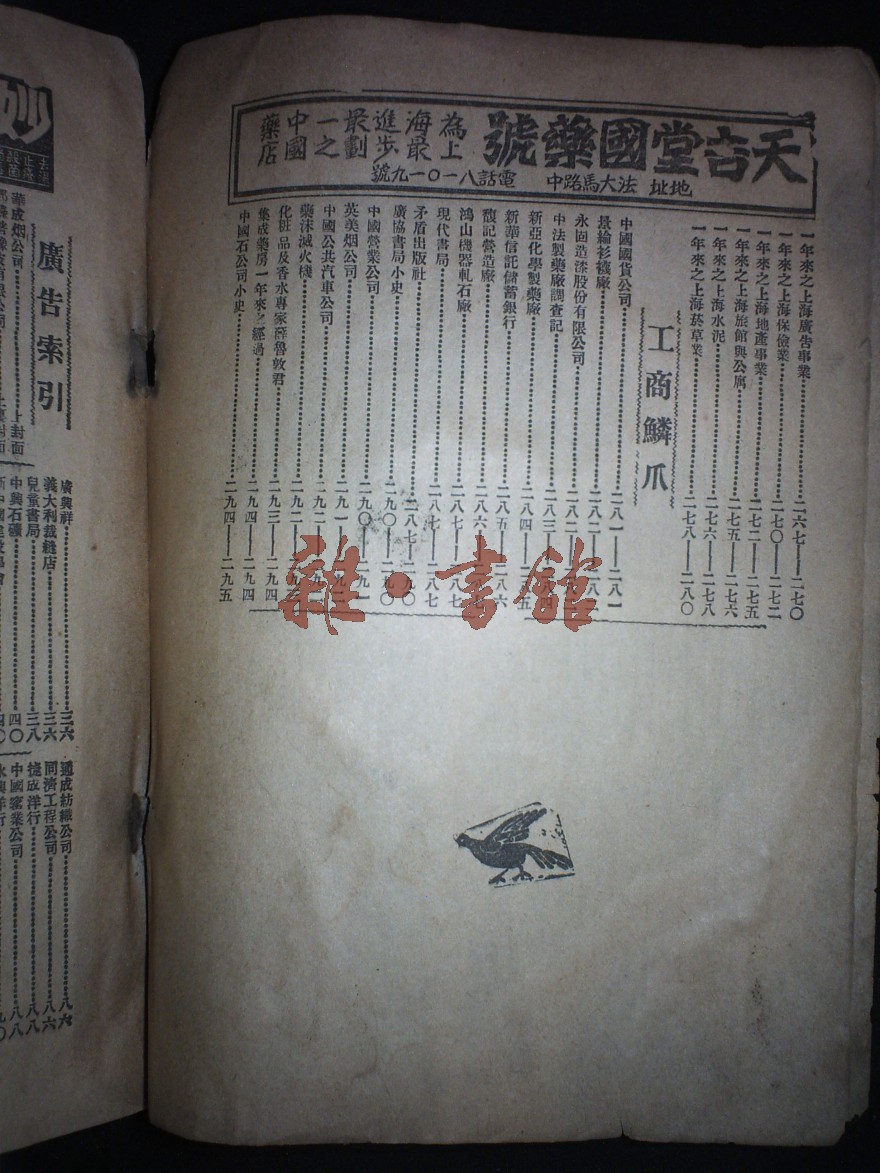 天吉堂國藥號
為上海最進步最劃一之中國藥店
地址 法大馬路中 電話八一〇一九號
一年來之上海廣告事業 二六七——二七〇
一年來之上海保險業 二七〇——二七二
一年來之上海地產事業 二七二——二七五
一年來之上海旅館與公寓 二七五——二七六
一年來之上海水泥 二七六——二七八
一年來之上海菸草業 二七八——二八〇
工商鱗爪
中國國貨公司 二八一——二八一
景綸衫襪廠 二八二——
永固造漆股份有限公司 二八二——
中法製藥廠調查記 二八三——
新亞化學製藥廠 二八四——二八五
新華信託儲蓄銀行 二八五——二八六
馥記營造廠 二八六——二八七
鴻山機器軋石廠 二八七——二八七
現代書局 二八七——二八七
矛盾出版社 二八七——二九〇
廣協書局小史 二九〇——二九〇
中國營業公司 二九〇——二九一
英美烟公司 二九一——二九二
中國公共汽車公司 二九二——
藥沫滅火機 二九二——
化粧品及香水專家薛魯敦君 二九三——
集成藥房一年來之經過 二九四——二九四
中國石公司小史 二九四——二九五
雜·書館
妙
廣告索引
華成烟公司 上封面
廣興祥 三六
義大利裁縫店 三六
兒童書局 三八
中興石礦 四〇
通成紡織公司 八六
同濟工程公司 八六
捷成洋行 八八
中國窰業公司 八八